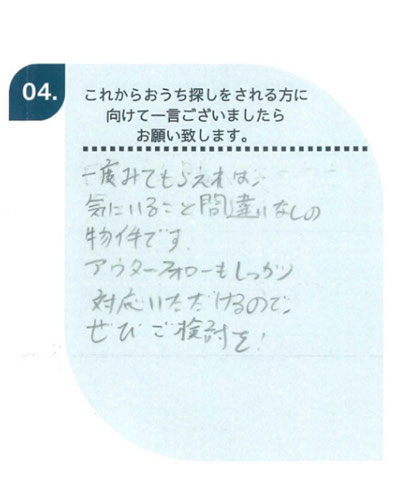 04.
これからおうち探しをされる方に
向けて一言ございましたら
お願い致します。
一度みてもらえれば、
気にいること間違いなしの
物件です。
アウターフォローもしっかり
対応いただけるので、
ぜひご検討を!